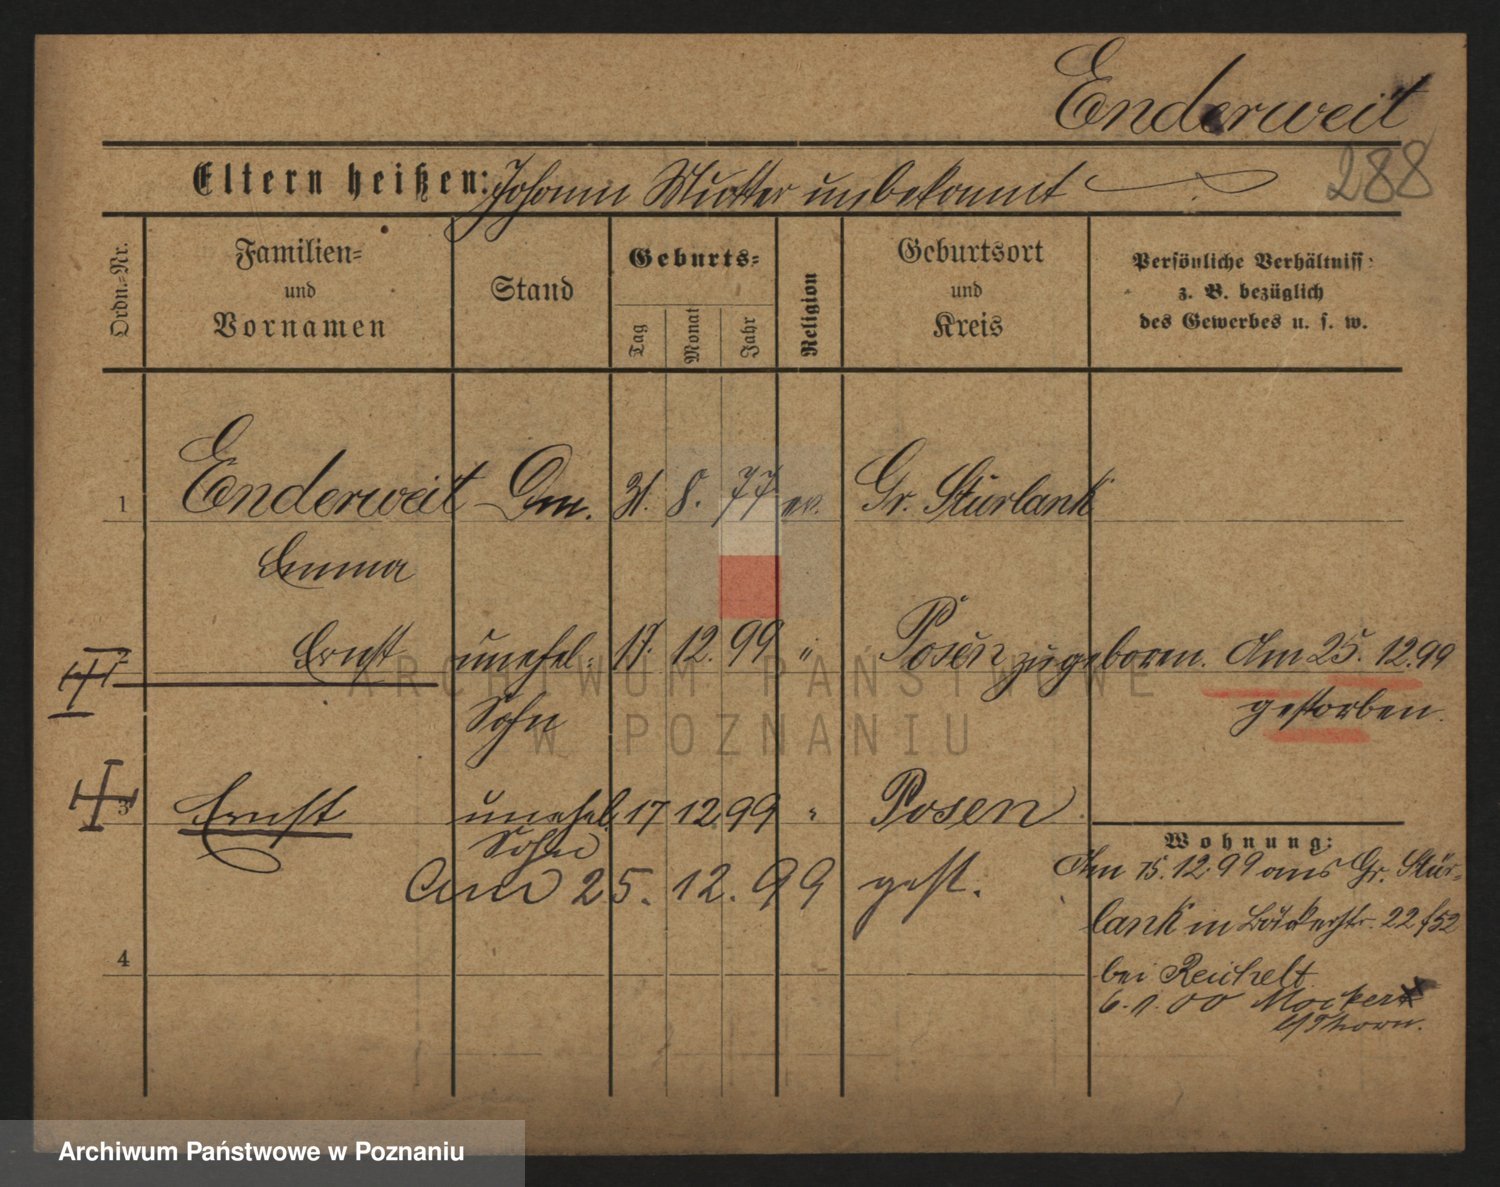 Enderweit
288
Eltern heißen: Johann Mutter unbekannt
Ordn.-Nr.
Familien-
und
Vornamen
Stand
Geburts-
Tag
Monat
Jahr
Religion
Geburtsort
und
Kreis
Persönliche Verhältniss-
z. B. bezüglich
des Gewerbes u. s. w.
1 Enderweit 31. 8. 77 ev. Gr. Stürlank
Emma
2 Ernst unehel- 17. 12. 99 " Posen zugeboren. Am 25. 12. 99
Sohn gestorben.
3 Ernst unehel. 17 12. 99 " Posen
Sohn
Am 25. 12. 99 gest.
4
Wohnung:
Am 15. 12. 99 aus Gr. Stür-
lank in Bäckerstr. 22
bei Reichelt
6. 1. 00 Mocker
b/Thorn.
ARCHIWUM PAŃSTWOWE
W POZNANIU
Archiwum Państwowe w Poznaniu